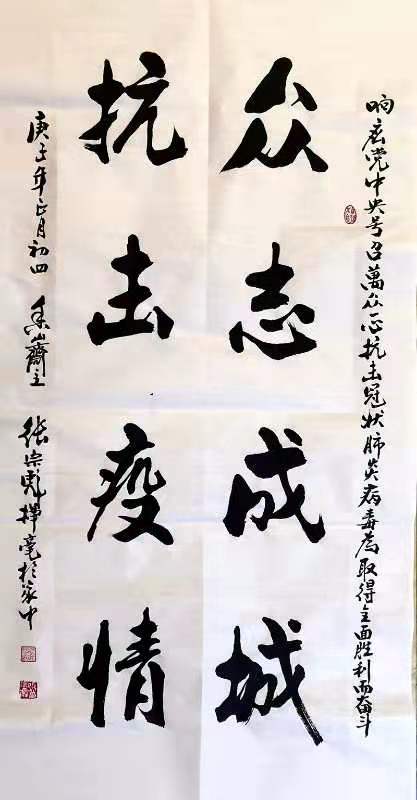 响应党中央号召萬众一心抗击冠状肺炎病毒為取得全面胜利而奋斗
众志成城
抗击疫情
庚子年正月初四 山齋主 张宗彪挥毫於家中